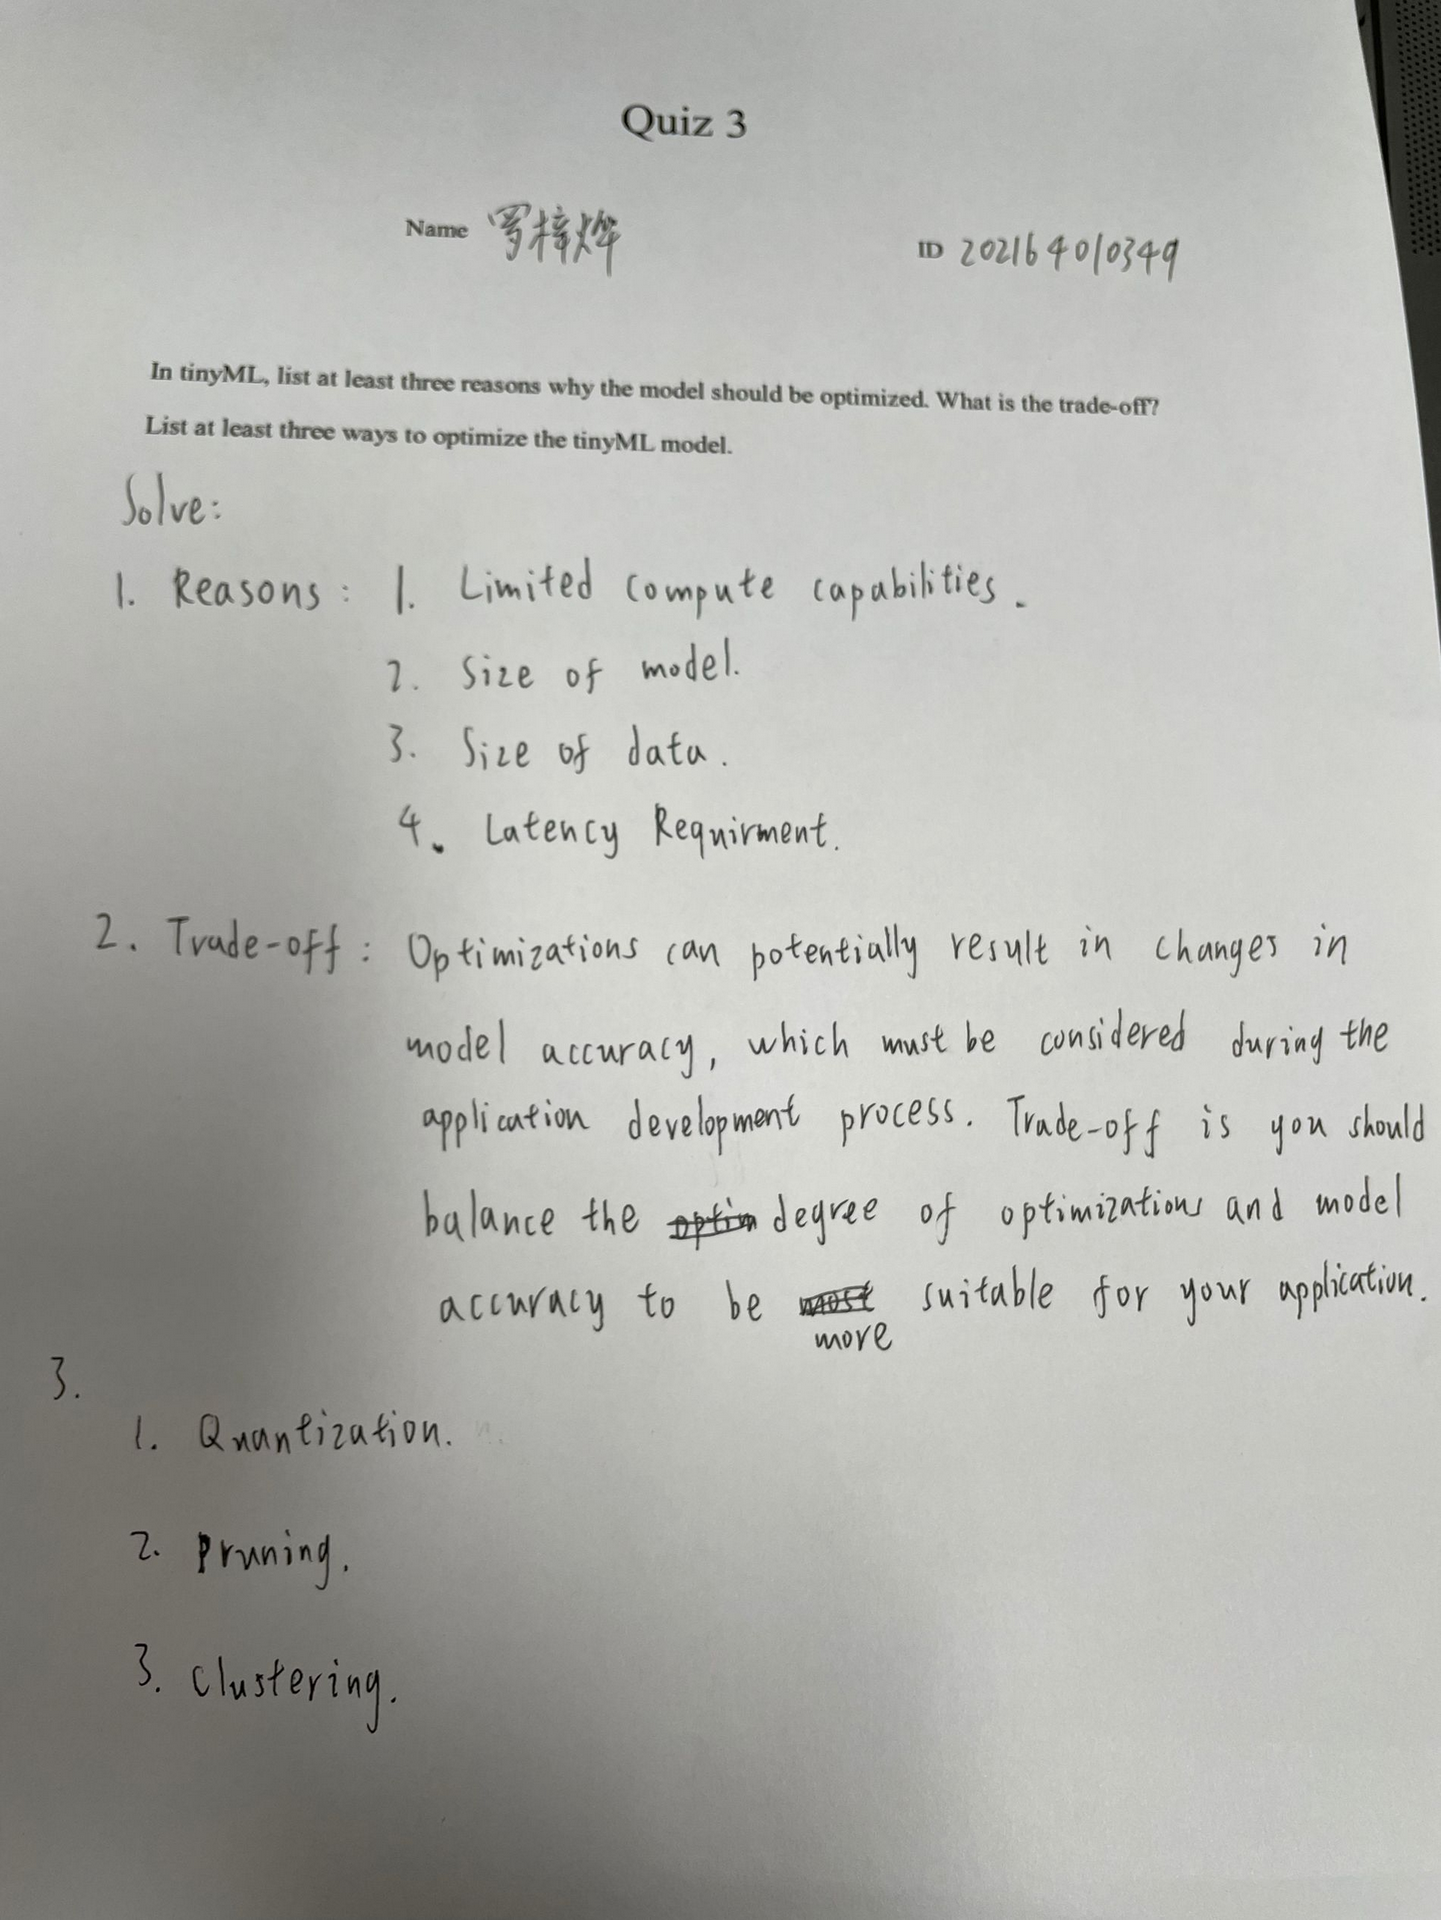 Quiz 3
Name 罗梓烨
ID 202164010349
In tinyML, list at least three reasons why the model should be optimized. What is the trade-off?
List at least three ways to optimize the tinyML model.
Solve:
1. Reasons: 1. Limited compute capabilities.
2. Size of model.
3. Size of data.
4. Latency Requirment.
2. Trade-off: Optimizations can potentially result in changes in
model accuracy, which must be considered during the
application development process. Trade-off is you should
balance the optim degree of optimizations and model
accuracy to be most suitable for your application.
more
3.
1. Quantization.
2. Pruning.
3. Clustering.